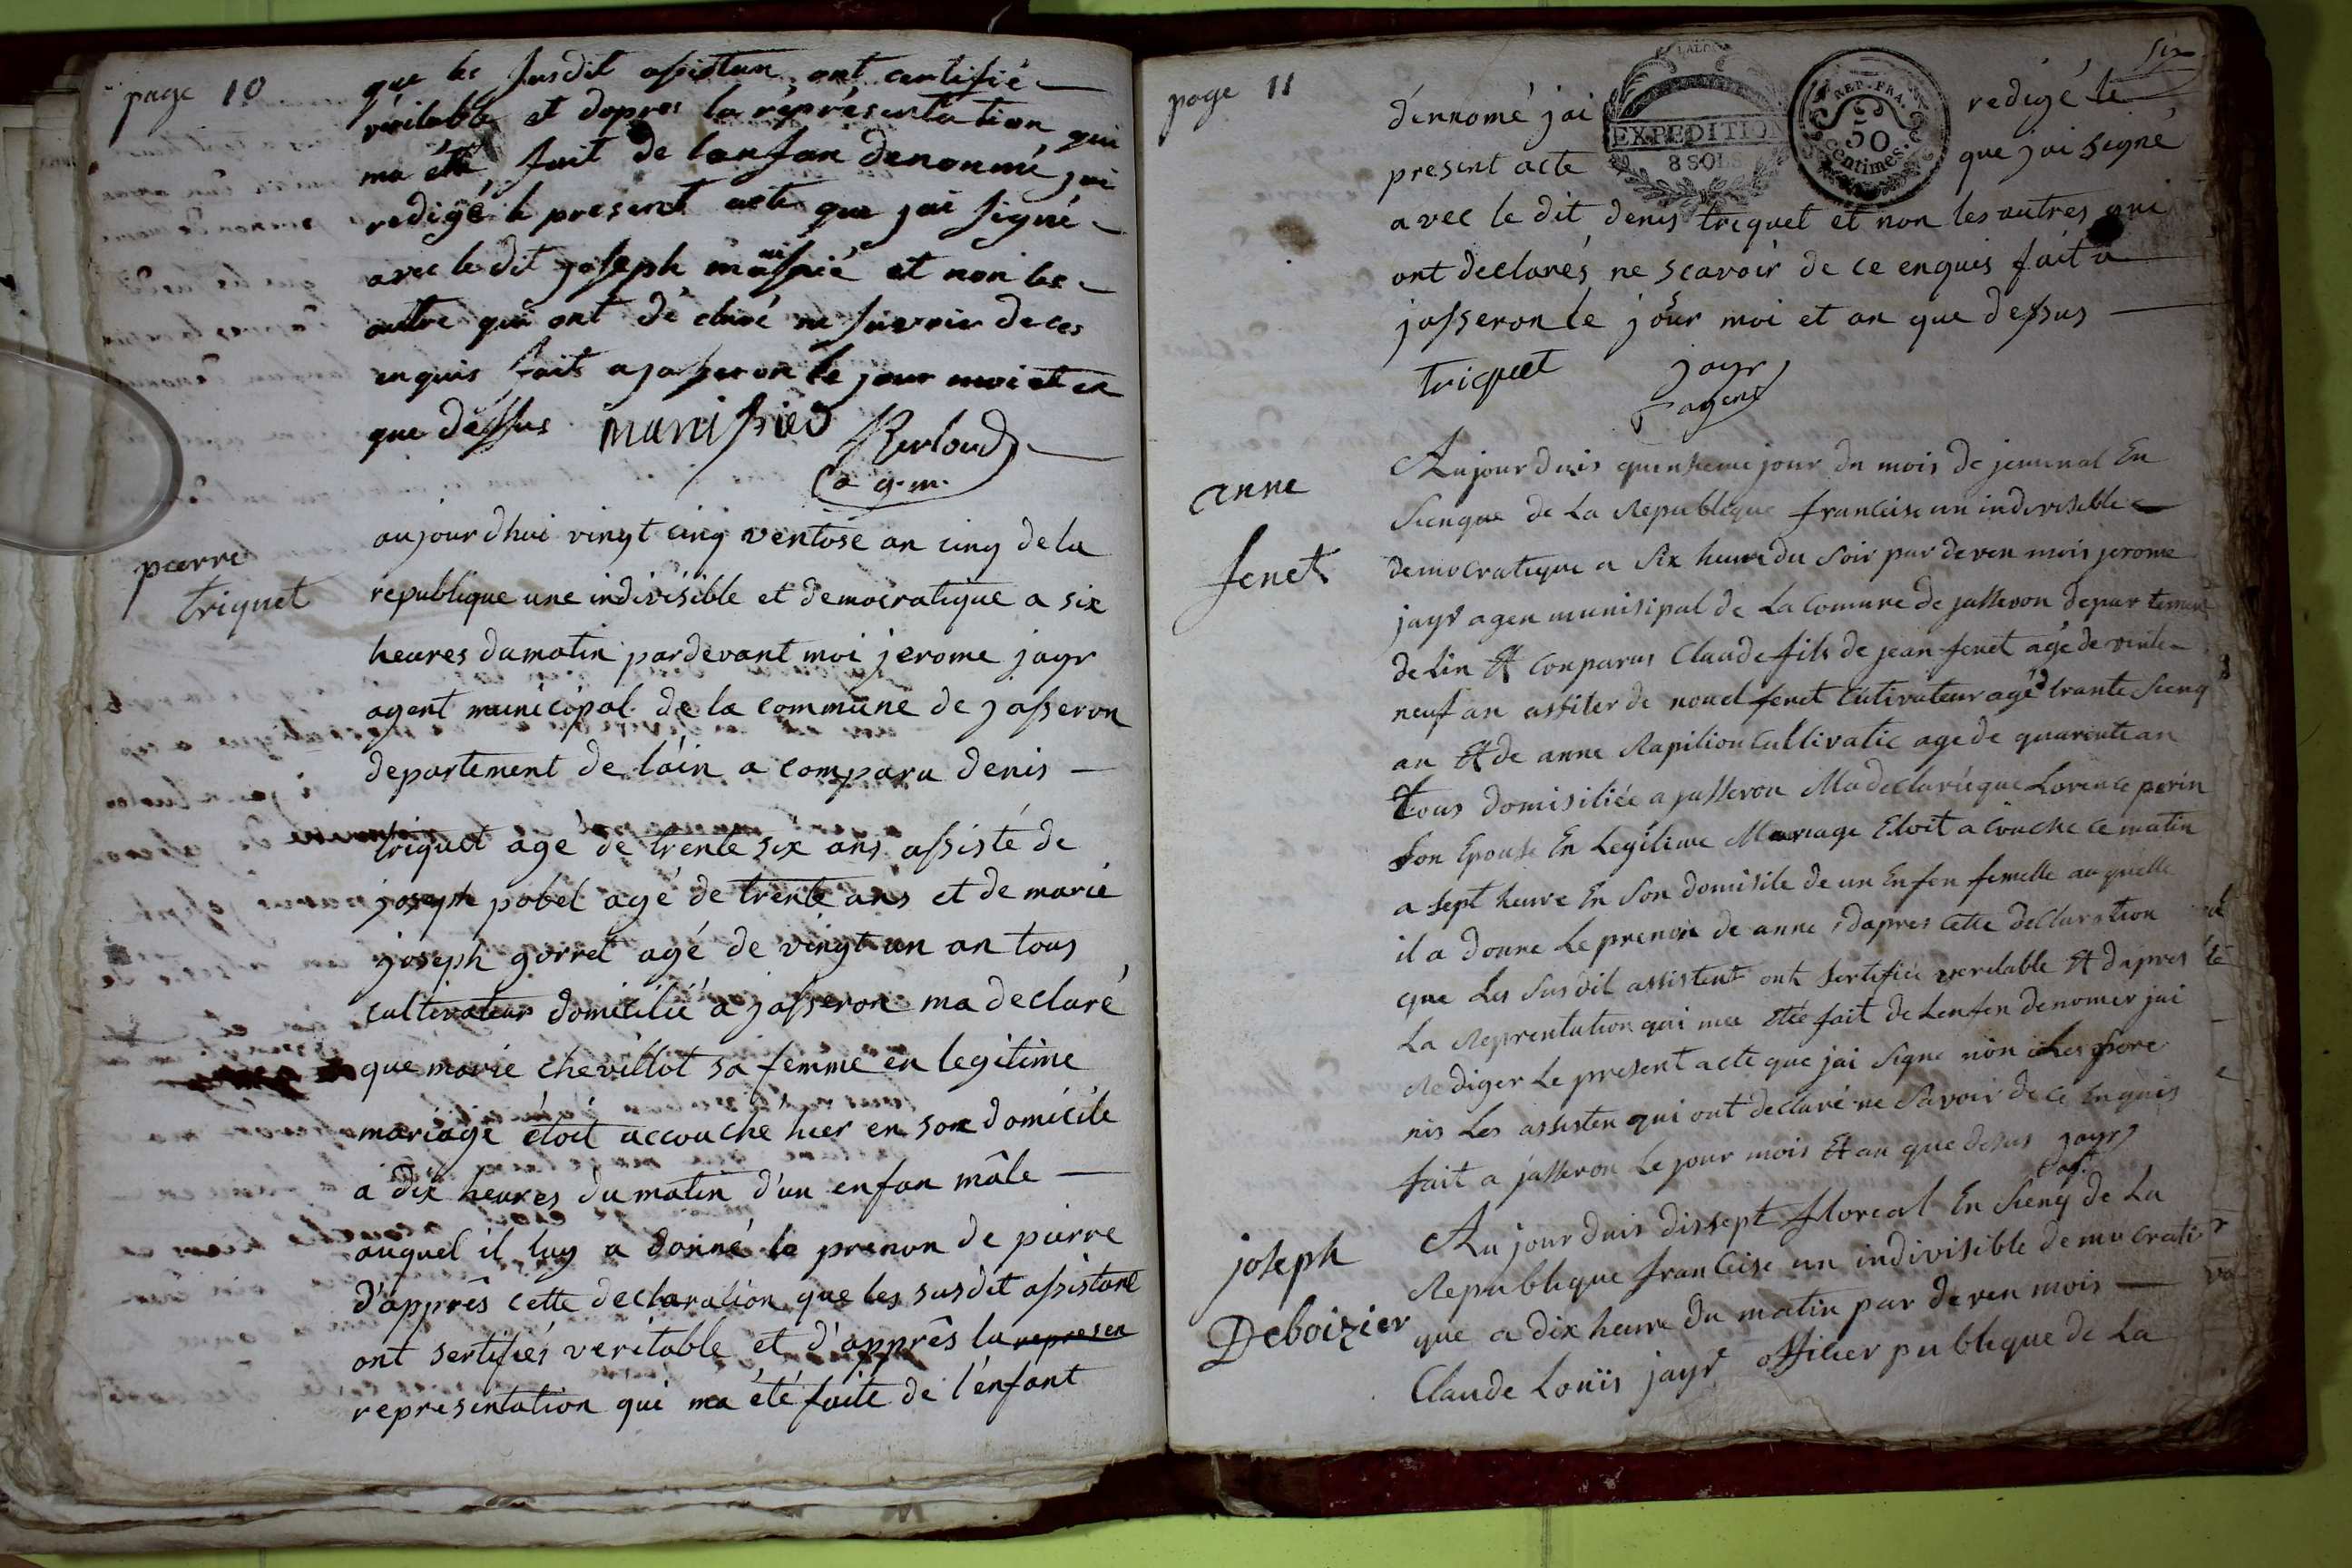 page 10
que les susdit assistan ont certifié
véritable et dapres la répresentation qui
ma été fait de lanfan denonmé jai
redigé le present acte que jai signé
avec le dit joseph manissié et non les
autre qui ont dé claré ne savoir de ces
enquis fait a jasseron le jour moi et en
que dessus manissied Berloud
a g.m.
pierre
triquet
aujourdhui vingt cinq ventose an cinq de la
republique une indivisible et democratique a six
heures du matin pardevant moi jerome jayr
agent municipal de la commune de jasseron
departement de láin a comparu denis
triquet agé de trente six ans assisté de
joseph pobel agé de trente ans et de marie
joseph gorret agé de vingt un an tous
cultivateur domicilié a jasseron ma declaré
que marie chevillot sa femme en legitime
mariage étoit accouché hier en son domicile
a dix heures du matin d'un enfan mâle
auquel il luy a donné le prenon de pierre
d'apprês cette declaration que les susdit assistant
ont sertifiés veritable et d'apprês la represen
representation qui ma été faite de l'énfant
page 11
six
dénnomé jai redigé le
present acte que jai signé
EXPEDITION
8 SOLS
REP. FRA.
50
Centimes.
avec le dit denis triquet et non les autres qui
ont declarés ne scavoir de ce enquis fait a
jasseron le jour moi et an que dessus
triquet jayr
agent
anne
fenet
Aujourduis quinseme jour du mois de jeminal En
Sienque de La Republique francise un indivisible
democratique a Six heure du Soir par deven mois jerome
jayr agen munisipal de La Comune de jasseron departement
de Lin Et Conparus Claude fils de jean fenet agé de vinte
neuf an assiter de nouel fenet Cutivateur agé trante Sienq
an Et de anne Rapilion Cultivatic age de quarente an
tous domisiliée a jasseron Ma declarée que Lorence perin
Son Epouse En Legitime Mariage Etoit a Couche ce matin
a Sept heure En Son domisile de un Enfen femelle au quelle
il a donne Le prenon de anne dapres Cette declaration
que Les Susdit assistent ont Sertifiée veritable Et dapres
La Reprentation qui mea Etée fait de Lenfen denomer jai
Rediger Le present acte que jai Signe non Les
nis Les assisten qui ont declaré ne Savoir de Ce Enquis
fait a jasseron Le jour mois Et an que desus jayr
joseph
Deboizier
Au jour duis dissept floreal En Sienq de La
Republique francise un indivisible democrati
que a dix heure du matin par deven mois
Claude Louis jayr offisier publique de La